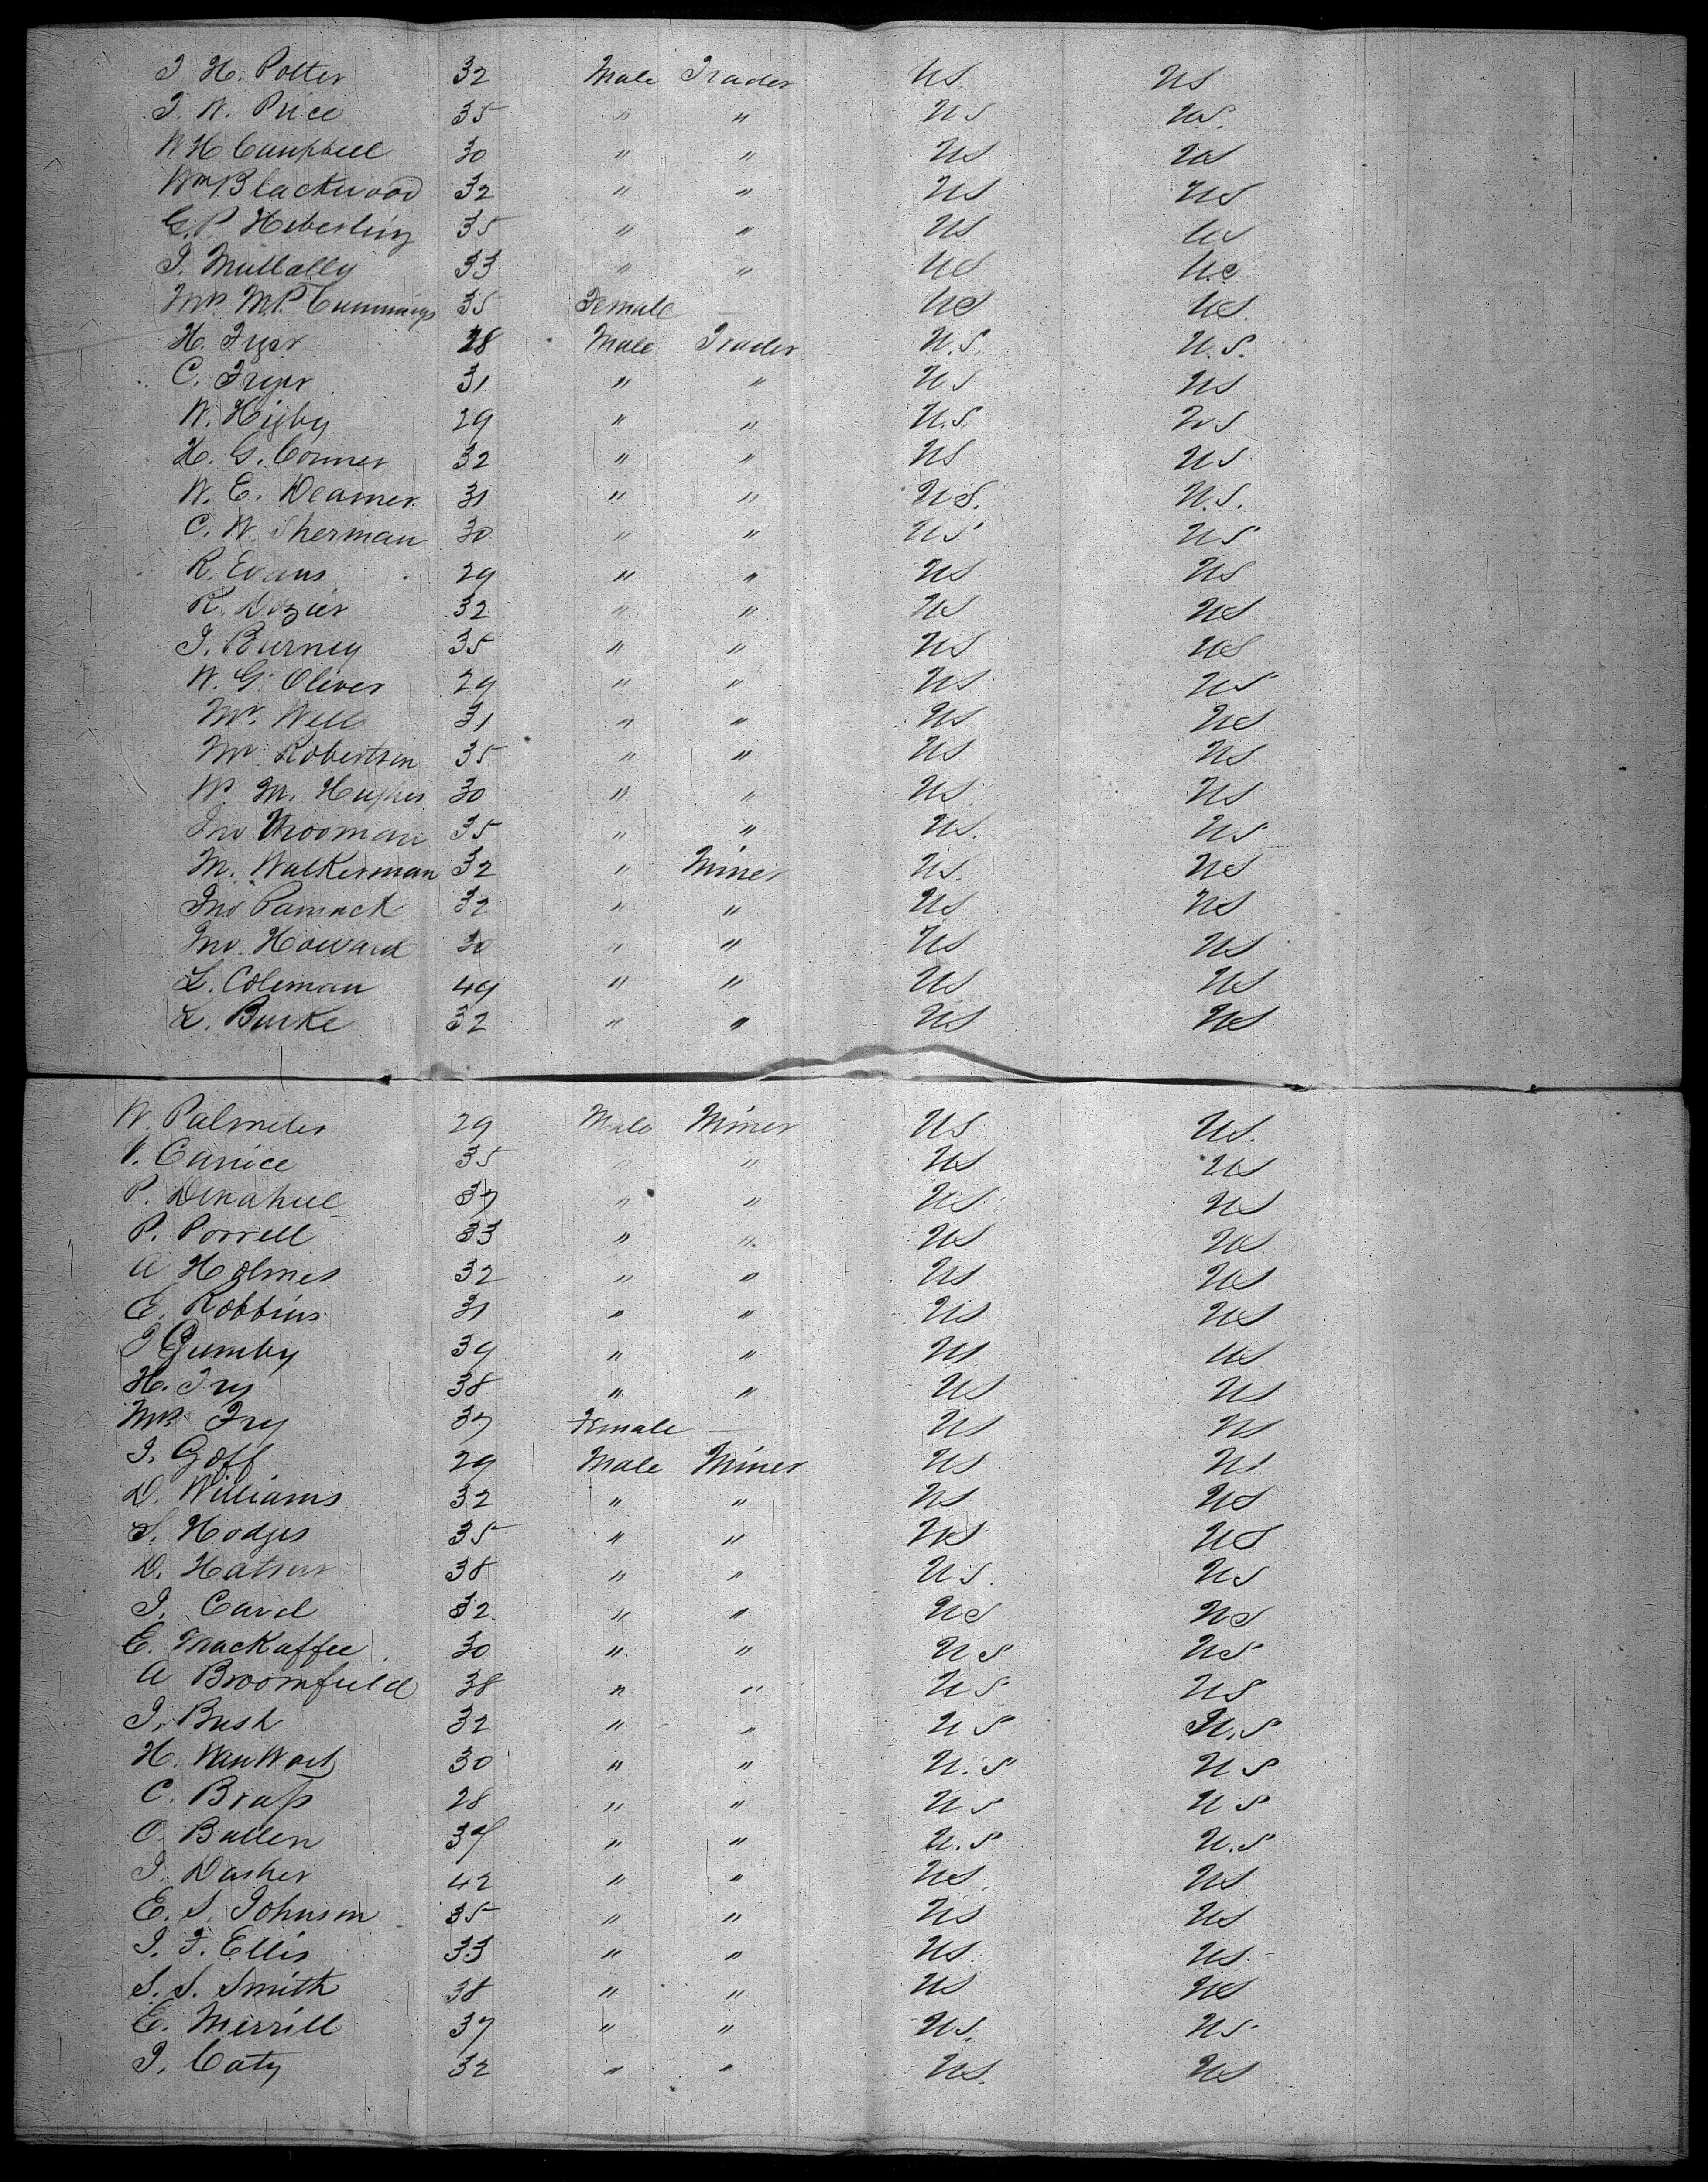 J. H. Potter 32 Male Trader US US
J. W. Price 35 " " US US.
W H Campbell 30 " " US US
Wm Blackwood 32 " " US US
G. P. Heberling 35 " " US US
J. Mullally 33 " " US US
Mrs M.P. Cummings 35 Female — US US.
H. Fryer 28 Male Trader U.S. U.S.
C. Fryer 31 " " US US
W. Higby 29 " " U.S. US
H. G. Conner 32 " " US US
W. E. Deamer. 31 " " US. U.S.
C. W. Sherman 30 " " US US
R. Evans 29 " " US US
R. Dozier 32 " " US US
J. Burney 35 " " US US
W. G. Oliver 29 " " US US
Mr. Wells 31 " " US US
Mr Robertson 35 " " US US
W. M. Hughes 30 " " US US
Jno Vrooman 35 " " US. US
M. Walkerman 32 " Miner US. US
Jno 32 " " US US
Jno. Howard 30 " " US US
L. Coleman 49 " " US US
L. Burke 32 " " US US
W. Palmeter 29 Male Miner US US.
35 " " US US
P. Denahue 37 " " US US
P. Porrell 33 " " US US
A Holmes 32 " " US US
E. Robbins 31 " " US US
J Gumby 39 " " US US
H. Fry 38 " " US US
Mrs Fry 37 Female — US US
J. Goff 29 Male Miner US US
D. Williams 32 " " US US
S. Hodges 35 " " US US
D. 38 " " US. US
J. Carol 32 " " US US
E. MacKaffee 30 " " US US
A Broomfield 38 " " US US
J. Bush 32 " " US U.S
H. VanWort 30 " " U.S US
C. Brass 28 " " US US
O. Bullen 37 " " U.S U.S
J. Dasher 42 " " US. US
E. S. Johnson 35 " " US US
J. F. Ellis 33 " " US US
S. S. Smith 38 " " US US
E. Merrill 37 " " US. US
J. Caty 32 " " US. US